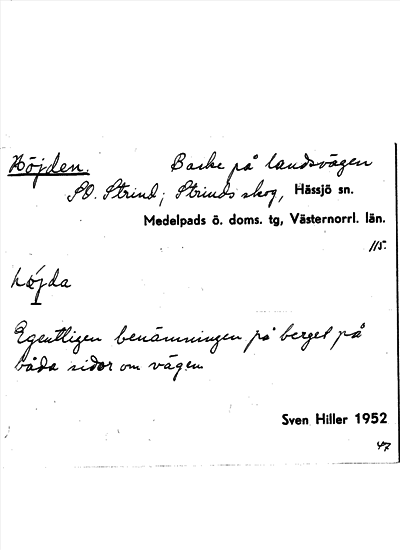 Höjden. Backe på landsvägen
SO. Strind; Strinds skog, Hässjö sn.
Medelpads ö. doms. tg, Västernorrl. län.
115.
hǽjda
Egentligen benämningen på berget på
båda sidor om vägen
Sven Hiller 1952
47